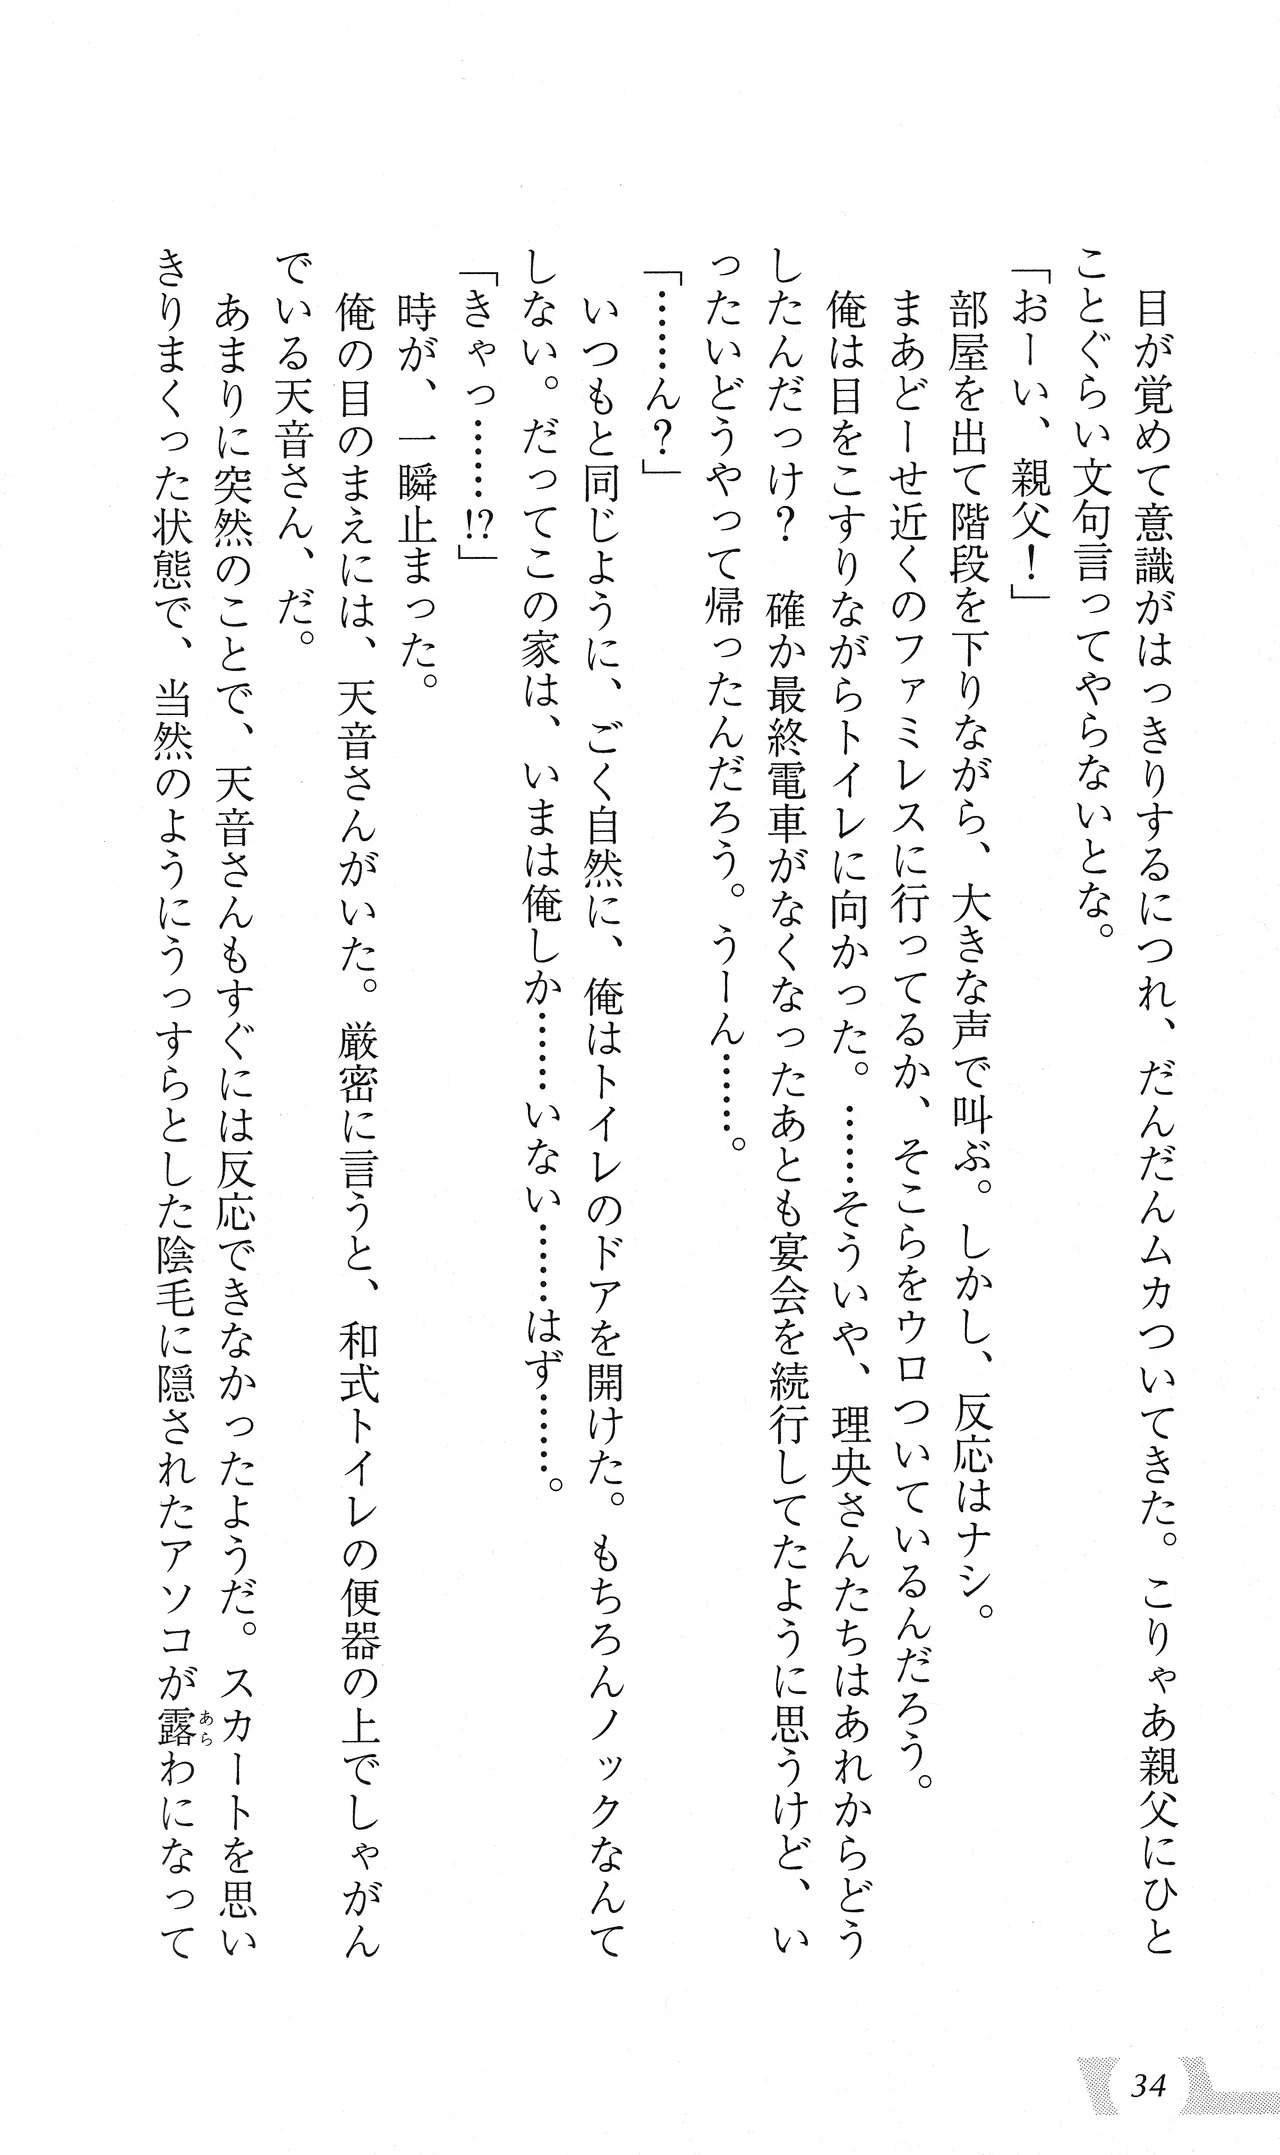 目が覚めて意識がはっきりするにつれ、だんだんムカついてきた。こりゃあ親父にひと
ことぐらい文句言ってやらないとな。
「おーい、親父！」
部屋を出て階段を下りながら、大きな声で叫ぶ。しかし、反応はナシ。
まあどーせ近くのファミレスに行ってるか、そこらをウロついているんだろう。
俺は目をこすりながらトイレに向かった。……そういや、理央さんたちはあれからどう
したんだっけ？　確か最終電車がなくなったあとも宴会を続行してたように思うけど、い
ったいどうやって帰ったんだろう。うーん……。
「……ん？」
いつもと同じように、ごく自然に、俺はトイレのドアを開けた。もちろんノックなんて
しない。だってこの家は、いまは俺しか……いない……はず……。
「きゃっ……!?」
時が、一瞬止まった。
俺の目のまえには、天音さんがいた。厳密に言うと、和式トイレの便器の上でしゃがん
でいる天音さん、だ。
あまりに突然のことで、天音さんもすぐには反応できなかったようだ。スカートを思い
きりまくった状態で、当然のようにうっすらとした陰毛に隠されたアソコが露わになって
あら
34